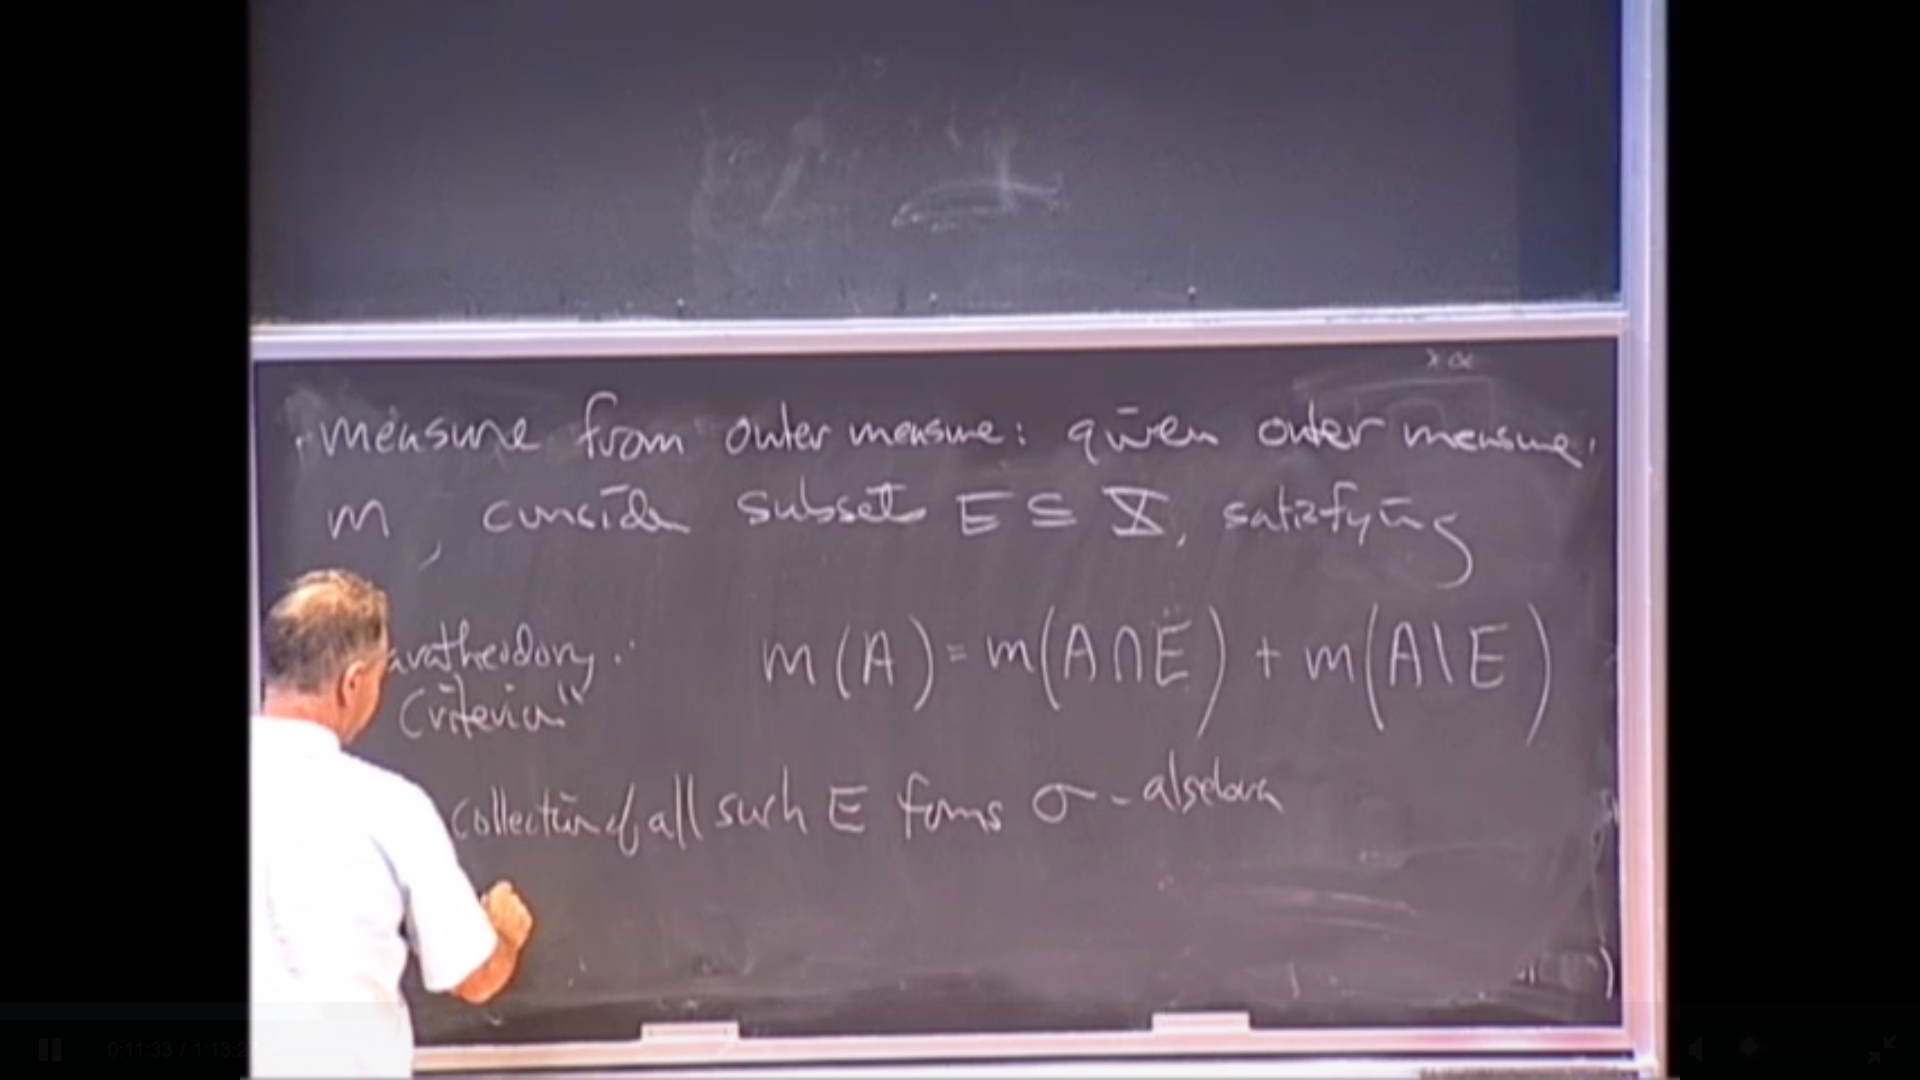 · measure from outer measure: given outer measure
m, consider subsets E ⊆ X, satisfying
aratheodory : m(A) = m(A∩E) + m(A\E)
Criterion"
collection of all such E forms σ-algebra
0:11:33 / 1:13:27